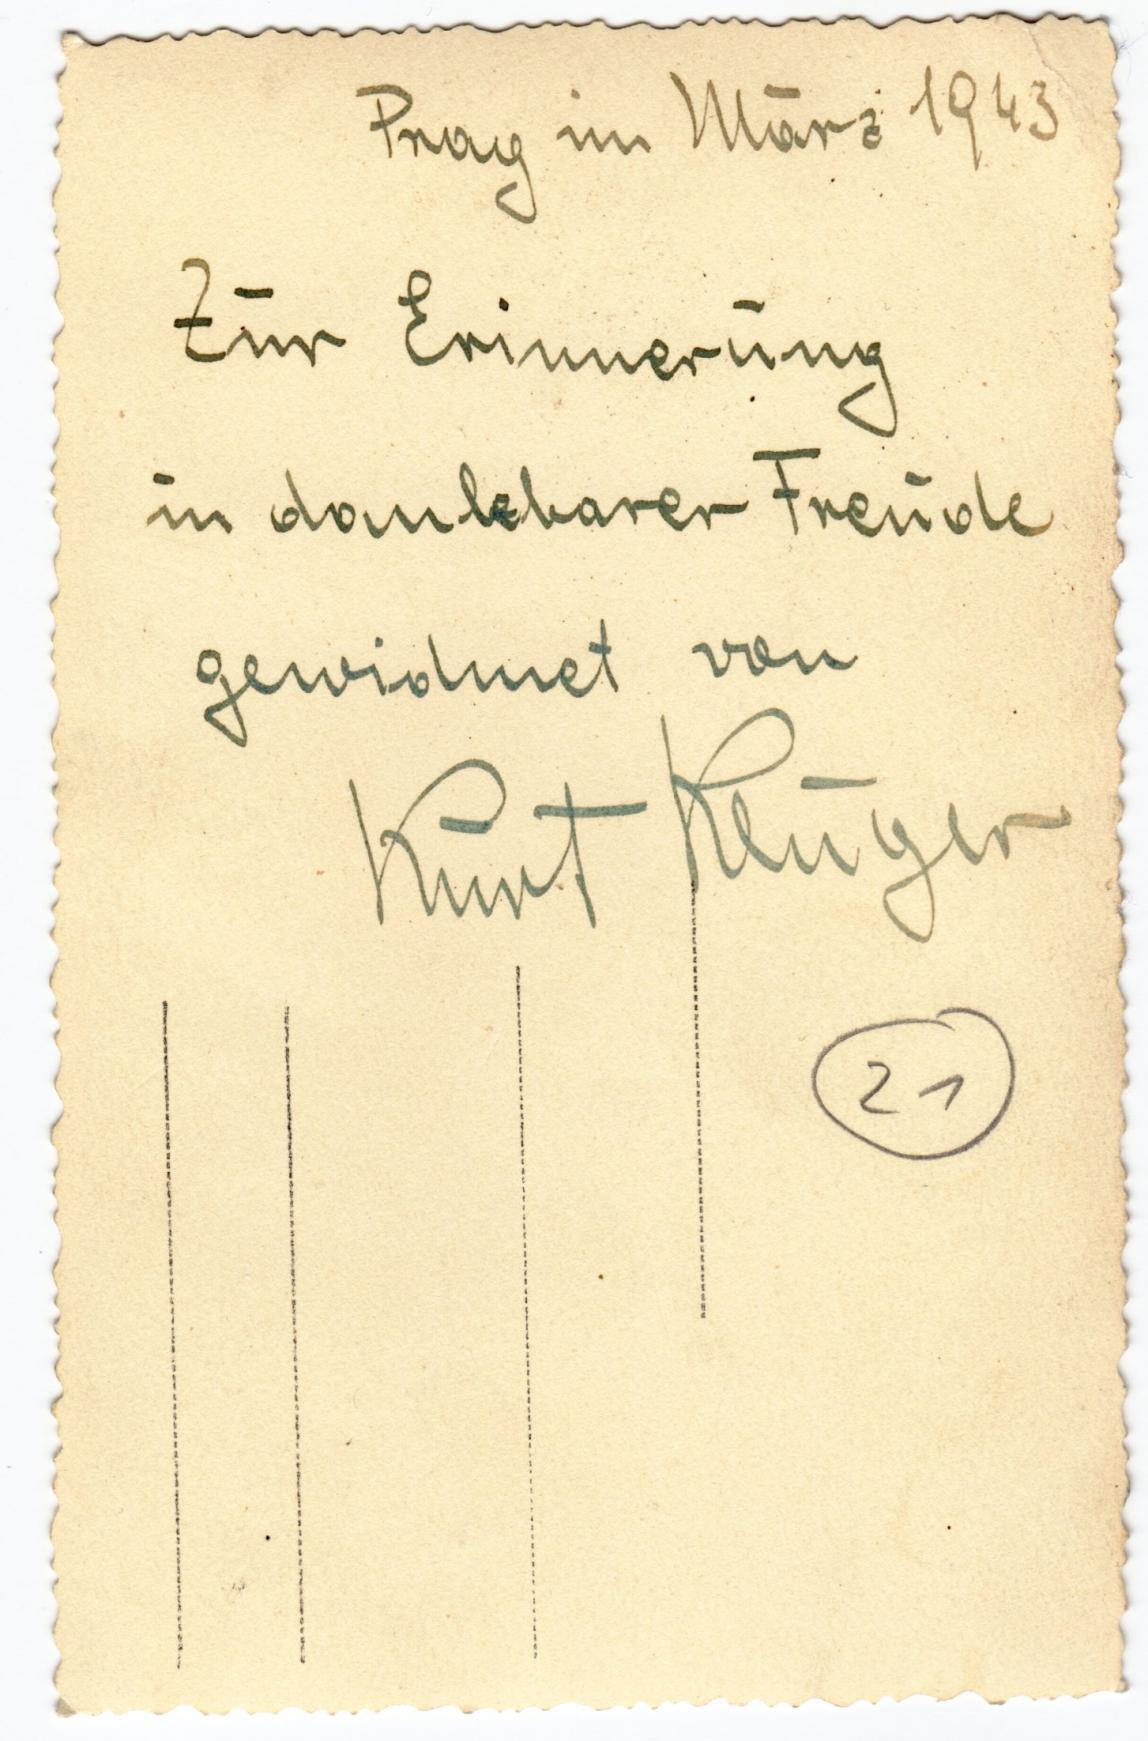 Prag im März 1943
Zur Erinnerung
in dankbarer Freude
gewidmet von
Kurt Kluger
21